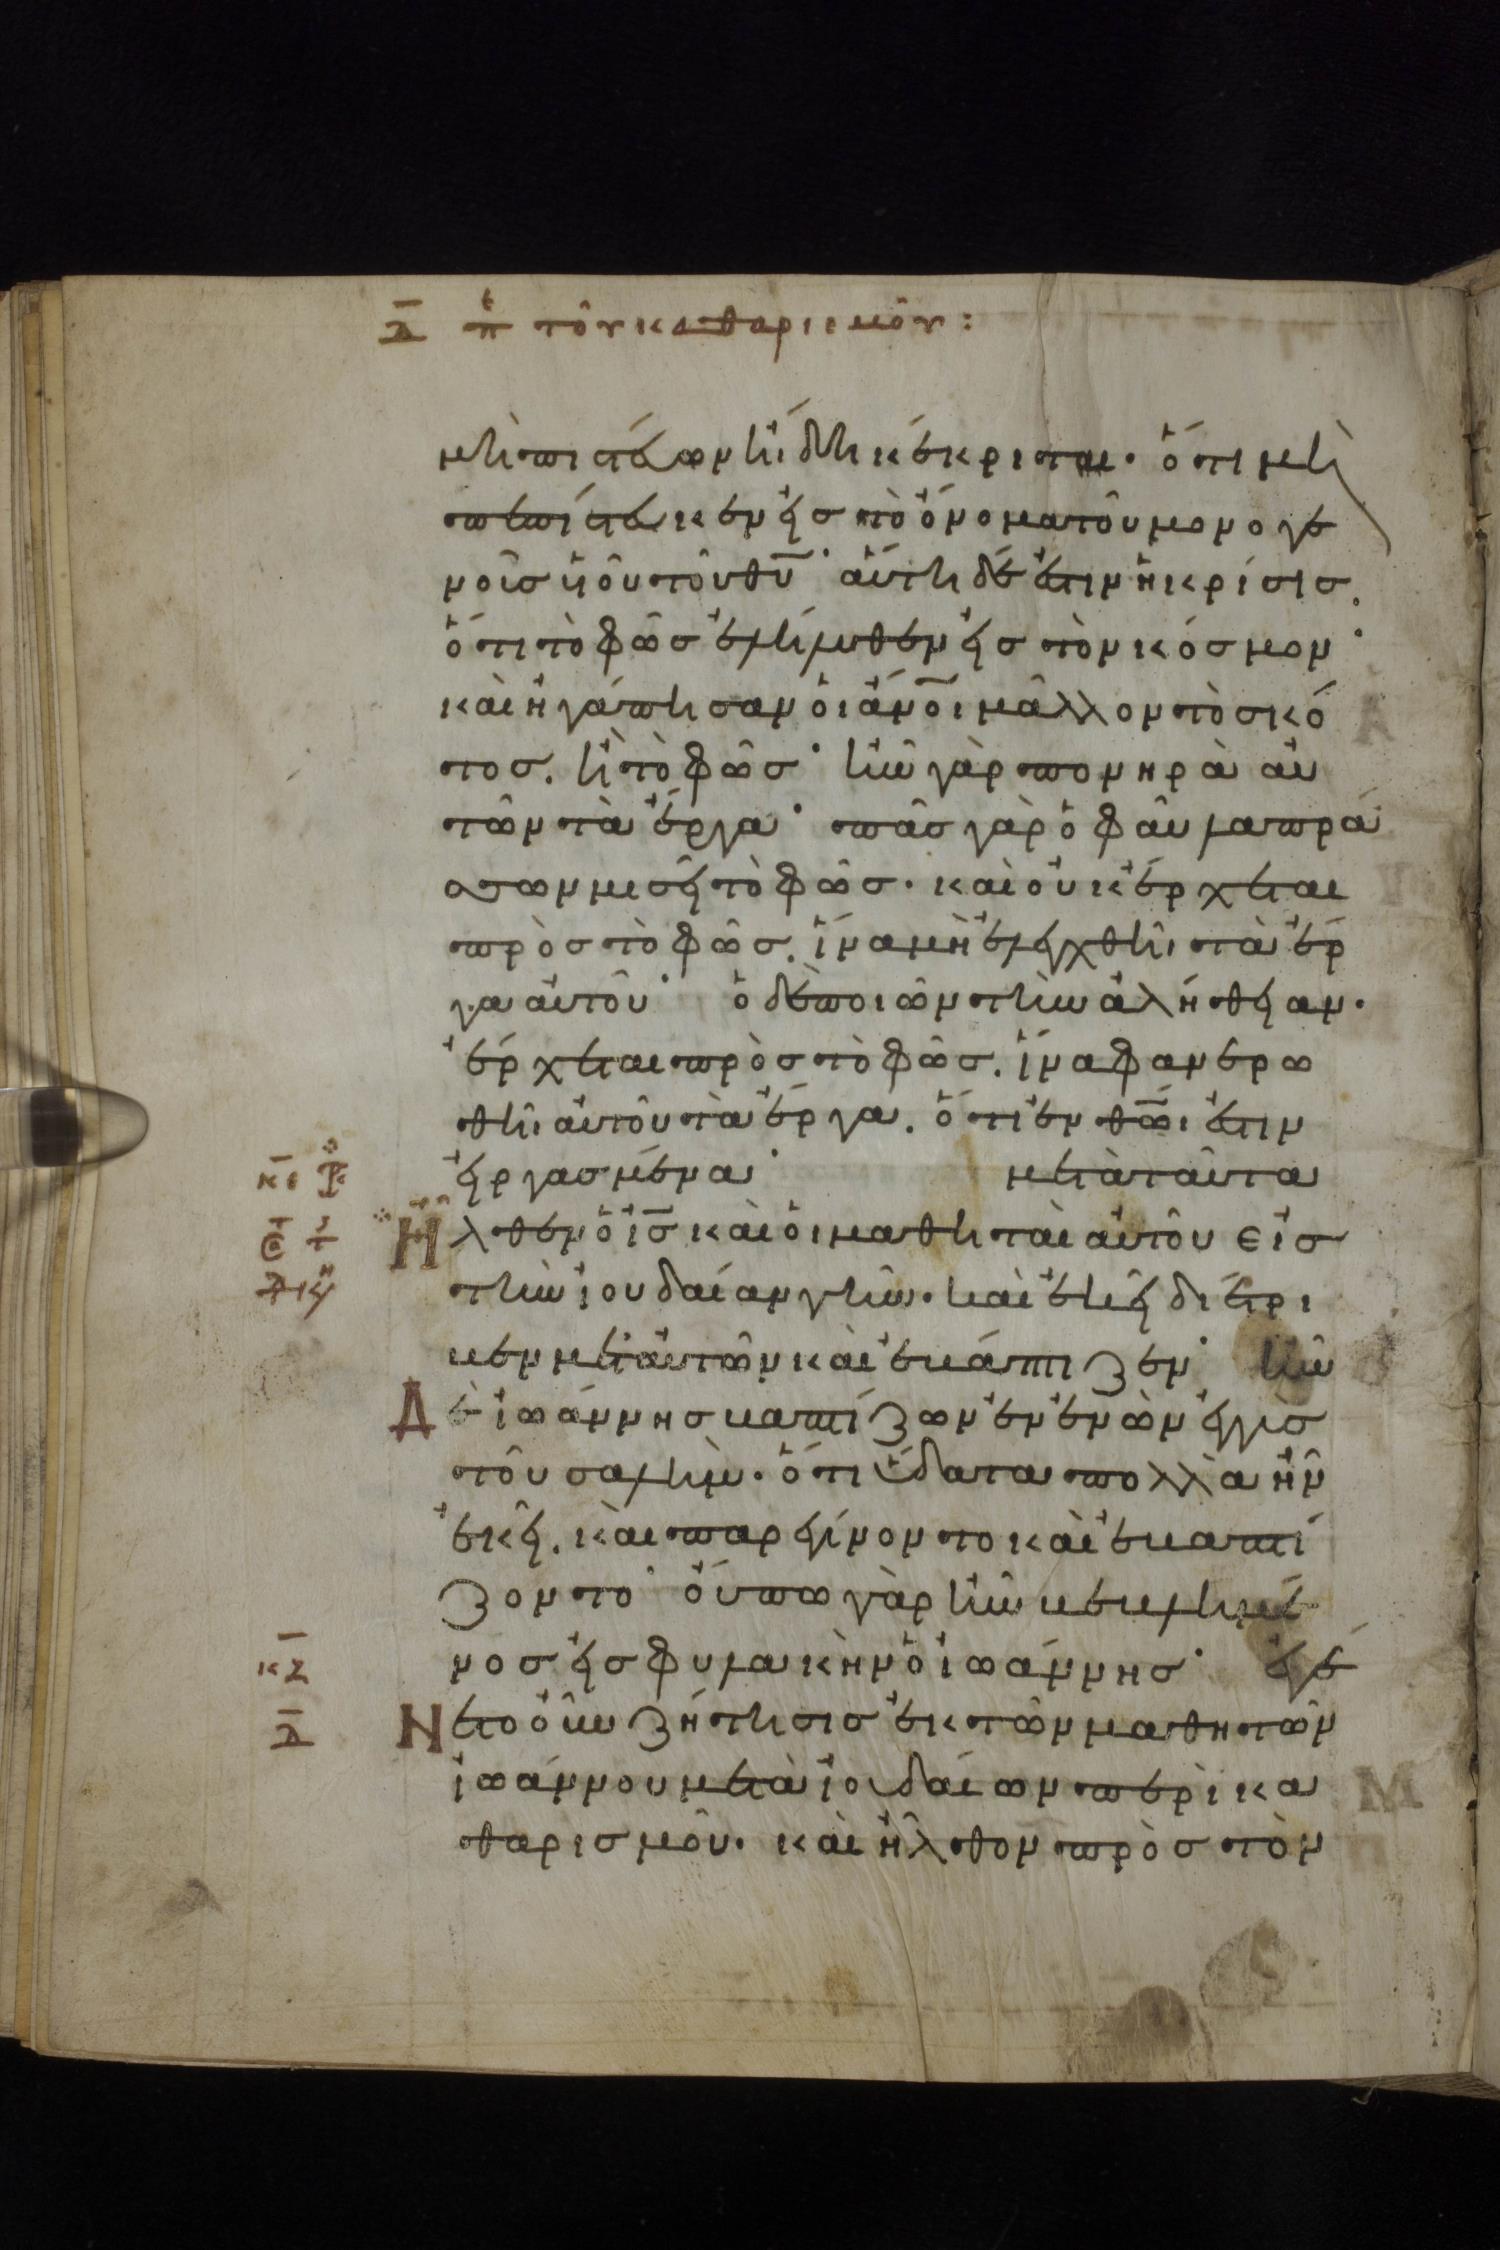 Δ̅ πε τοῦ καθαρισμοῦ:
μὴ πιστεύων ἤδη κέκριται· ὅτι μὴ
πεπίστευκεν εἰσ τὸ ὄνομα τοῦ μονογε
νοῦσ ϋἱοῦ τοῦ θ̅υ̅· αὕτη δέ ἐστιν ἡ κρίσισ.
ὅτι τὸ φῶσ ἐλήλυθεν εἰσ τὸν κόσμον·
καὶ ἠγάπησαν οἱ ἄν̅ο̅ι̅ μᾶλλον τὸ σκό
τοσ. ἢ τὸ φῶσ· ἦν γὰρ πονηρὰ αὐ
τῶν τὰ ἔργα· πᾶσ γὰρ ὁ φαῦλα πρά
σσων μισεῖ τὸ φῶσ· καὶ οὐκ ἔρχεται
πρὸσ τὸ φῶσ. ἵνα μὴ ἐλεγχθῆι τὰ ἔρ
γα αὐτοῦ· ὁ δὲ ποιῶν τὴν ἀλήθειαν·
ἔρχεται πρὸσ τὸ φῶσ. ἵνα φανερω
θῆι αὐτοῦ τὰ ἔργα. ὅτι ἐν θ̅ω̅ι ἐστιν
εἰργασμένα· μετὰ ταῦτα
κ̅ε̅
Ἦλθεν ὁ ι̅σ̅ καὶ οἱ μαθηταὶ αὐτοῦ εἰσ
τὴν ἰουδαίαν γῆν· καὶ ἐκεῖ διέτρι
βεν μετ' αὐτῶν καὶ ἐβάπτιζεν· ἦν
Δὲ ἰωάννησ βαπτίζων ἐν ἐνὼν ἐγγὺσ
τοῦ σαλὴμ· ὅτι ὕδατα πολλὰ ἦν
ἐκεῖ. καὶ παρεγίνοντο καὶ ἐβαπτί
ζοντο· οὔπω γὰρ ἦν βεβλημέ
νοσ εἰσ φυλακὴν ὁ ἰωάννησ· ἐγέ
κ̅ς̅
Δ̅
Νετο οὖν ζήτησισ ἐκ τῶν μαθητῶν
ἰωάννου μετὰ ἰουδαίων περὶ κα
θαρισμοῦ· καὶ ἦλθον πρὸσ τὸν